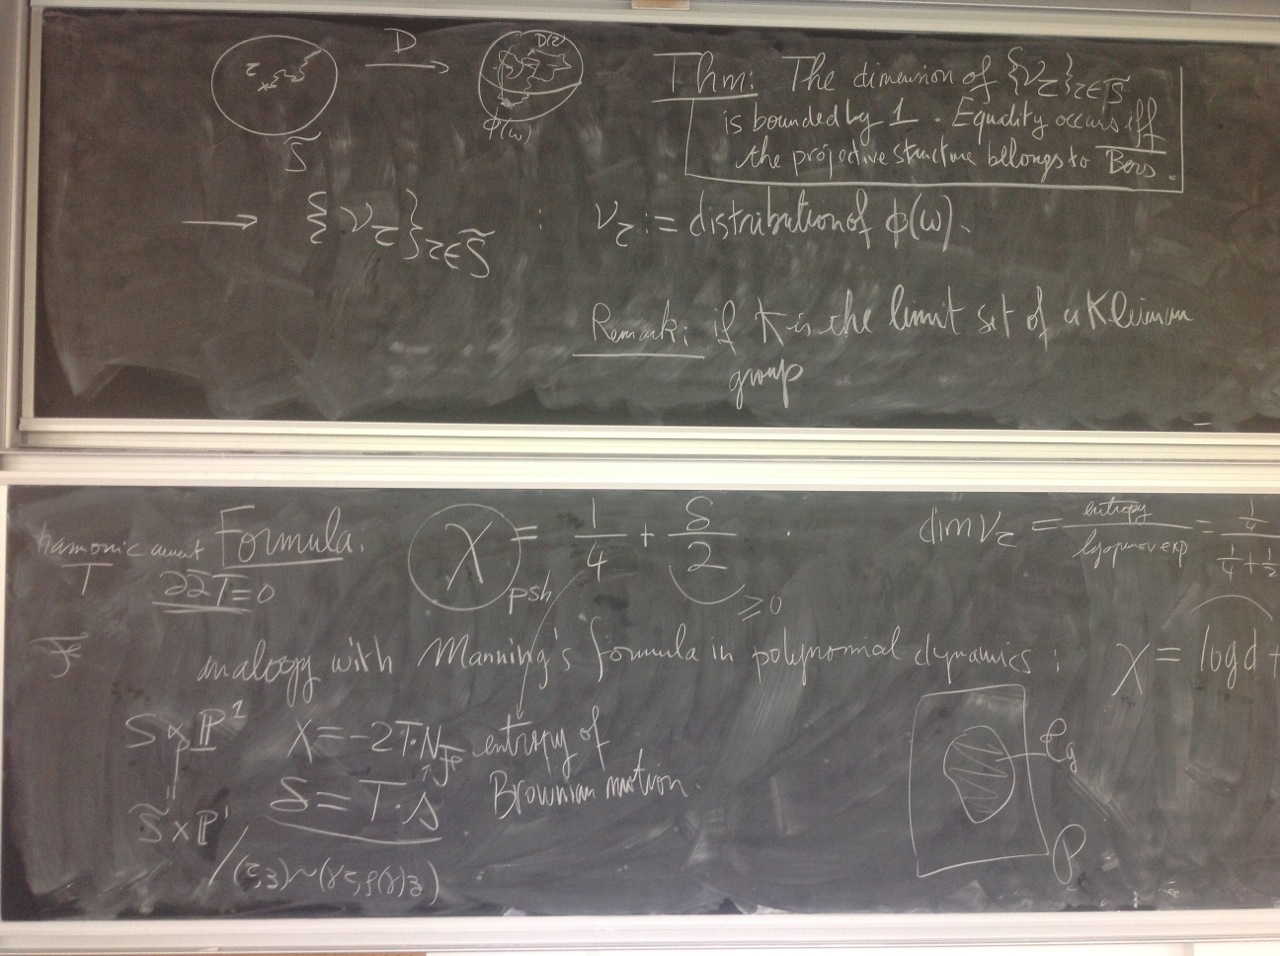 D
τ
D(τ)
ϕ(ω)
S̃
Thm: The dimension of {ν_τ}_τ∈S̃
is bounded by 1. Equality occurs iff
the projective structure belongs to Bers.
→ {ν_τ}_τ∈S̃ : ν_τ := distribution of ϕ(ω).
Remark: if K is the limit set of a Kleinian
group
harmonic current Formula. χ = 1/4 + δ/2 . dim ν_τ = entropy / = 1/4 / 1/4 + 1/2
T ∂∂̄T=0 psh ≥0
F analogy with Manning's formula in polynomial dynamics : χ = log d +
S ⋉ P¹ χ = -2T·N_F entropy of
δ = T·s Brownian motion.
S̃ × P¹
/(τ,z)~(γτ,ρ(γ)z)
P